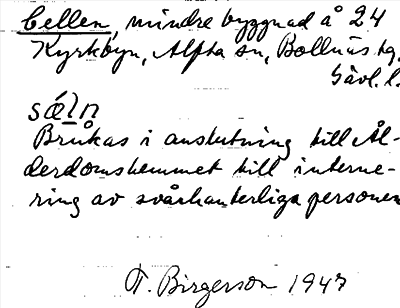 Cellen, mindre byggnad å 24
Kyrkbyn, Alfta sn, Bollnäs tg,
Gävl. l.
sæln
Brukas i anslutning till Ål-
derdomshemmet till interne-
ring av svårhanterliga personer
T. Birgerson 1947